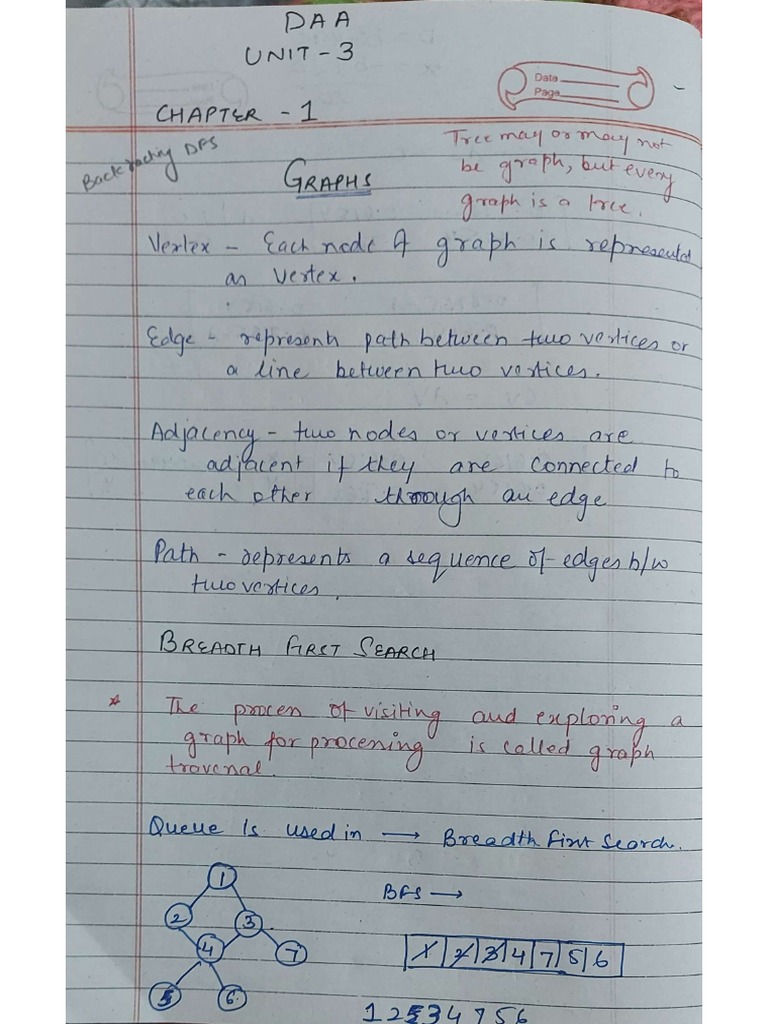 DAA
UNIT-3
Date
Page
CHAPTER - 1
Backtracking DFS
Tree may or may not
be graph, but every
graph is a tree.
GRAPHS
Vertex - Each node of graph is represented
as vertex.
Edge - represents path between two vertices or
a line between two vertices.
Adjacency - two nodes or vertices are
adjacent if they are connected to
each other through an edge
Path - represents a sequence of edges b/w
two vertices.
BREADTH FIRST SEARCH
* The process of visiting and exploring a
graph for processing is called graph
traversal.
Queue is used in → Breadth first Search.
BFS →
1
2 3
4 7
5 6
1 2 3 4 7 5 6
1 2 3 4 7 5 6